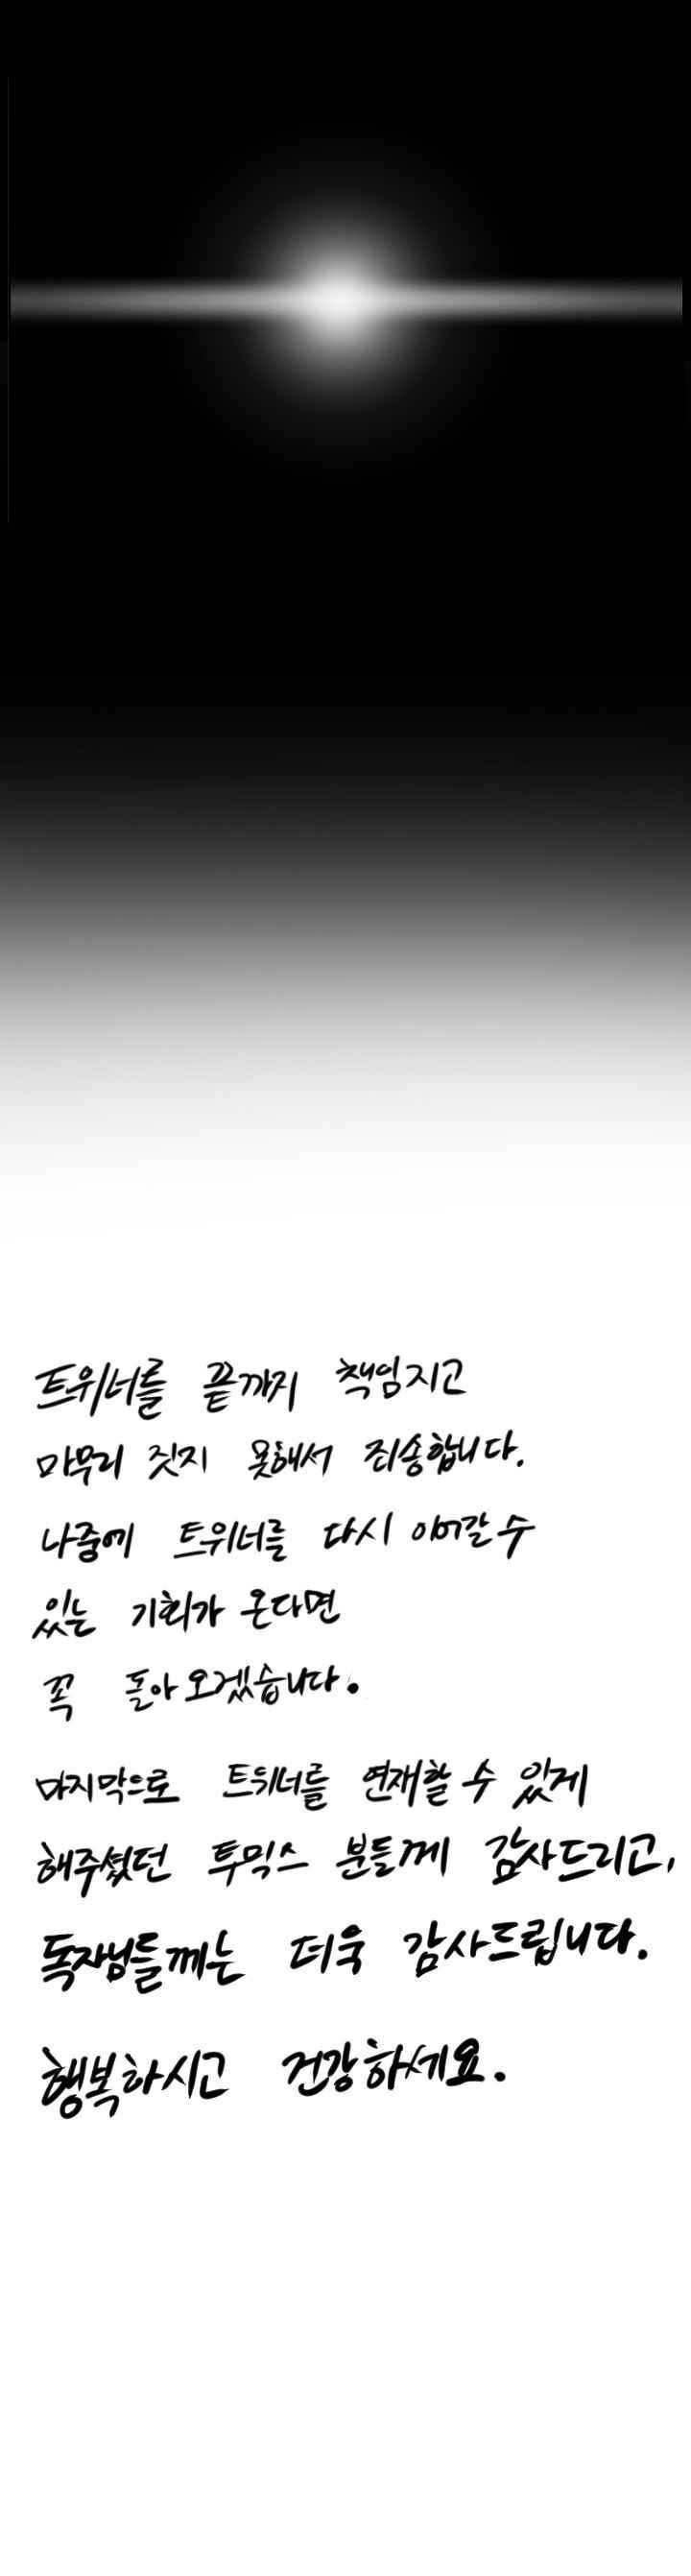 트위너를 끝까지 책임지고
마무리 짓지 못해서 죄송합니다.
나중에 트위너를 다시 이어갈 수
있는 기회가 온다면
꼭 돌아오겠습니다.
마지막으로 트위너를 연재할 수 있게
해주셨던 투믹스 분들께 감사드리고,
독자님들께는 더욱 감사드립니다.
행복하시고 건강하세요.